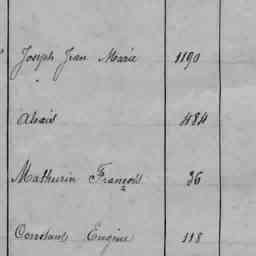 Joseph Jean Marie 1190
Alexis 484
Mathurin François 36
Constant Eugène 118